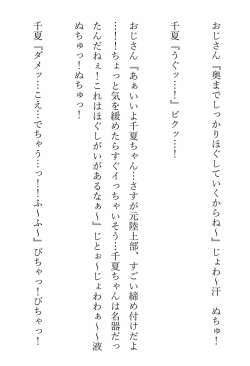 おじさん『奥までしっかりほぐしていくからね~』じょわ~汗　ぬちゅ！
千夏『うぐッ…！』ビクッ…！
おじさん『あぁいいよ千夏ちゃん…さすが元陸上部、すごい締め付けだよ
…！！ちょっと気を緩めたらすぐイっちゃいそう…千夏ちゃんは名器だっ
たんだねぇ！これはほぐしがいがあるなぁ~』じとぉ~じょわわぁ~~液
ぬちゅっ！ぬちゅっ！
千夏『ダメッ…こえ…でちゃう…っ！！ふ~ふ~』びちゃっ！びちゃっ！